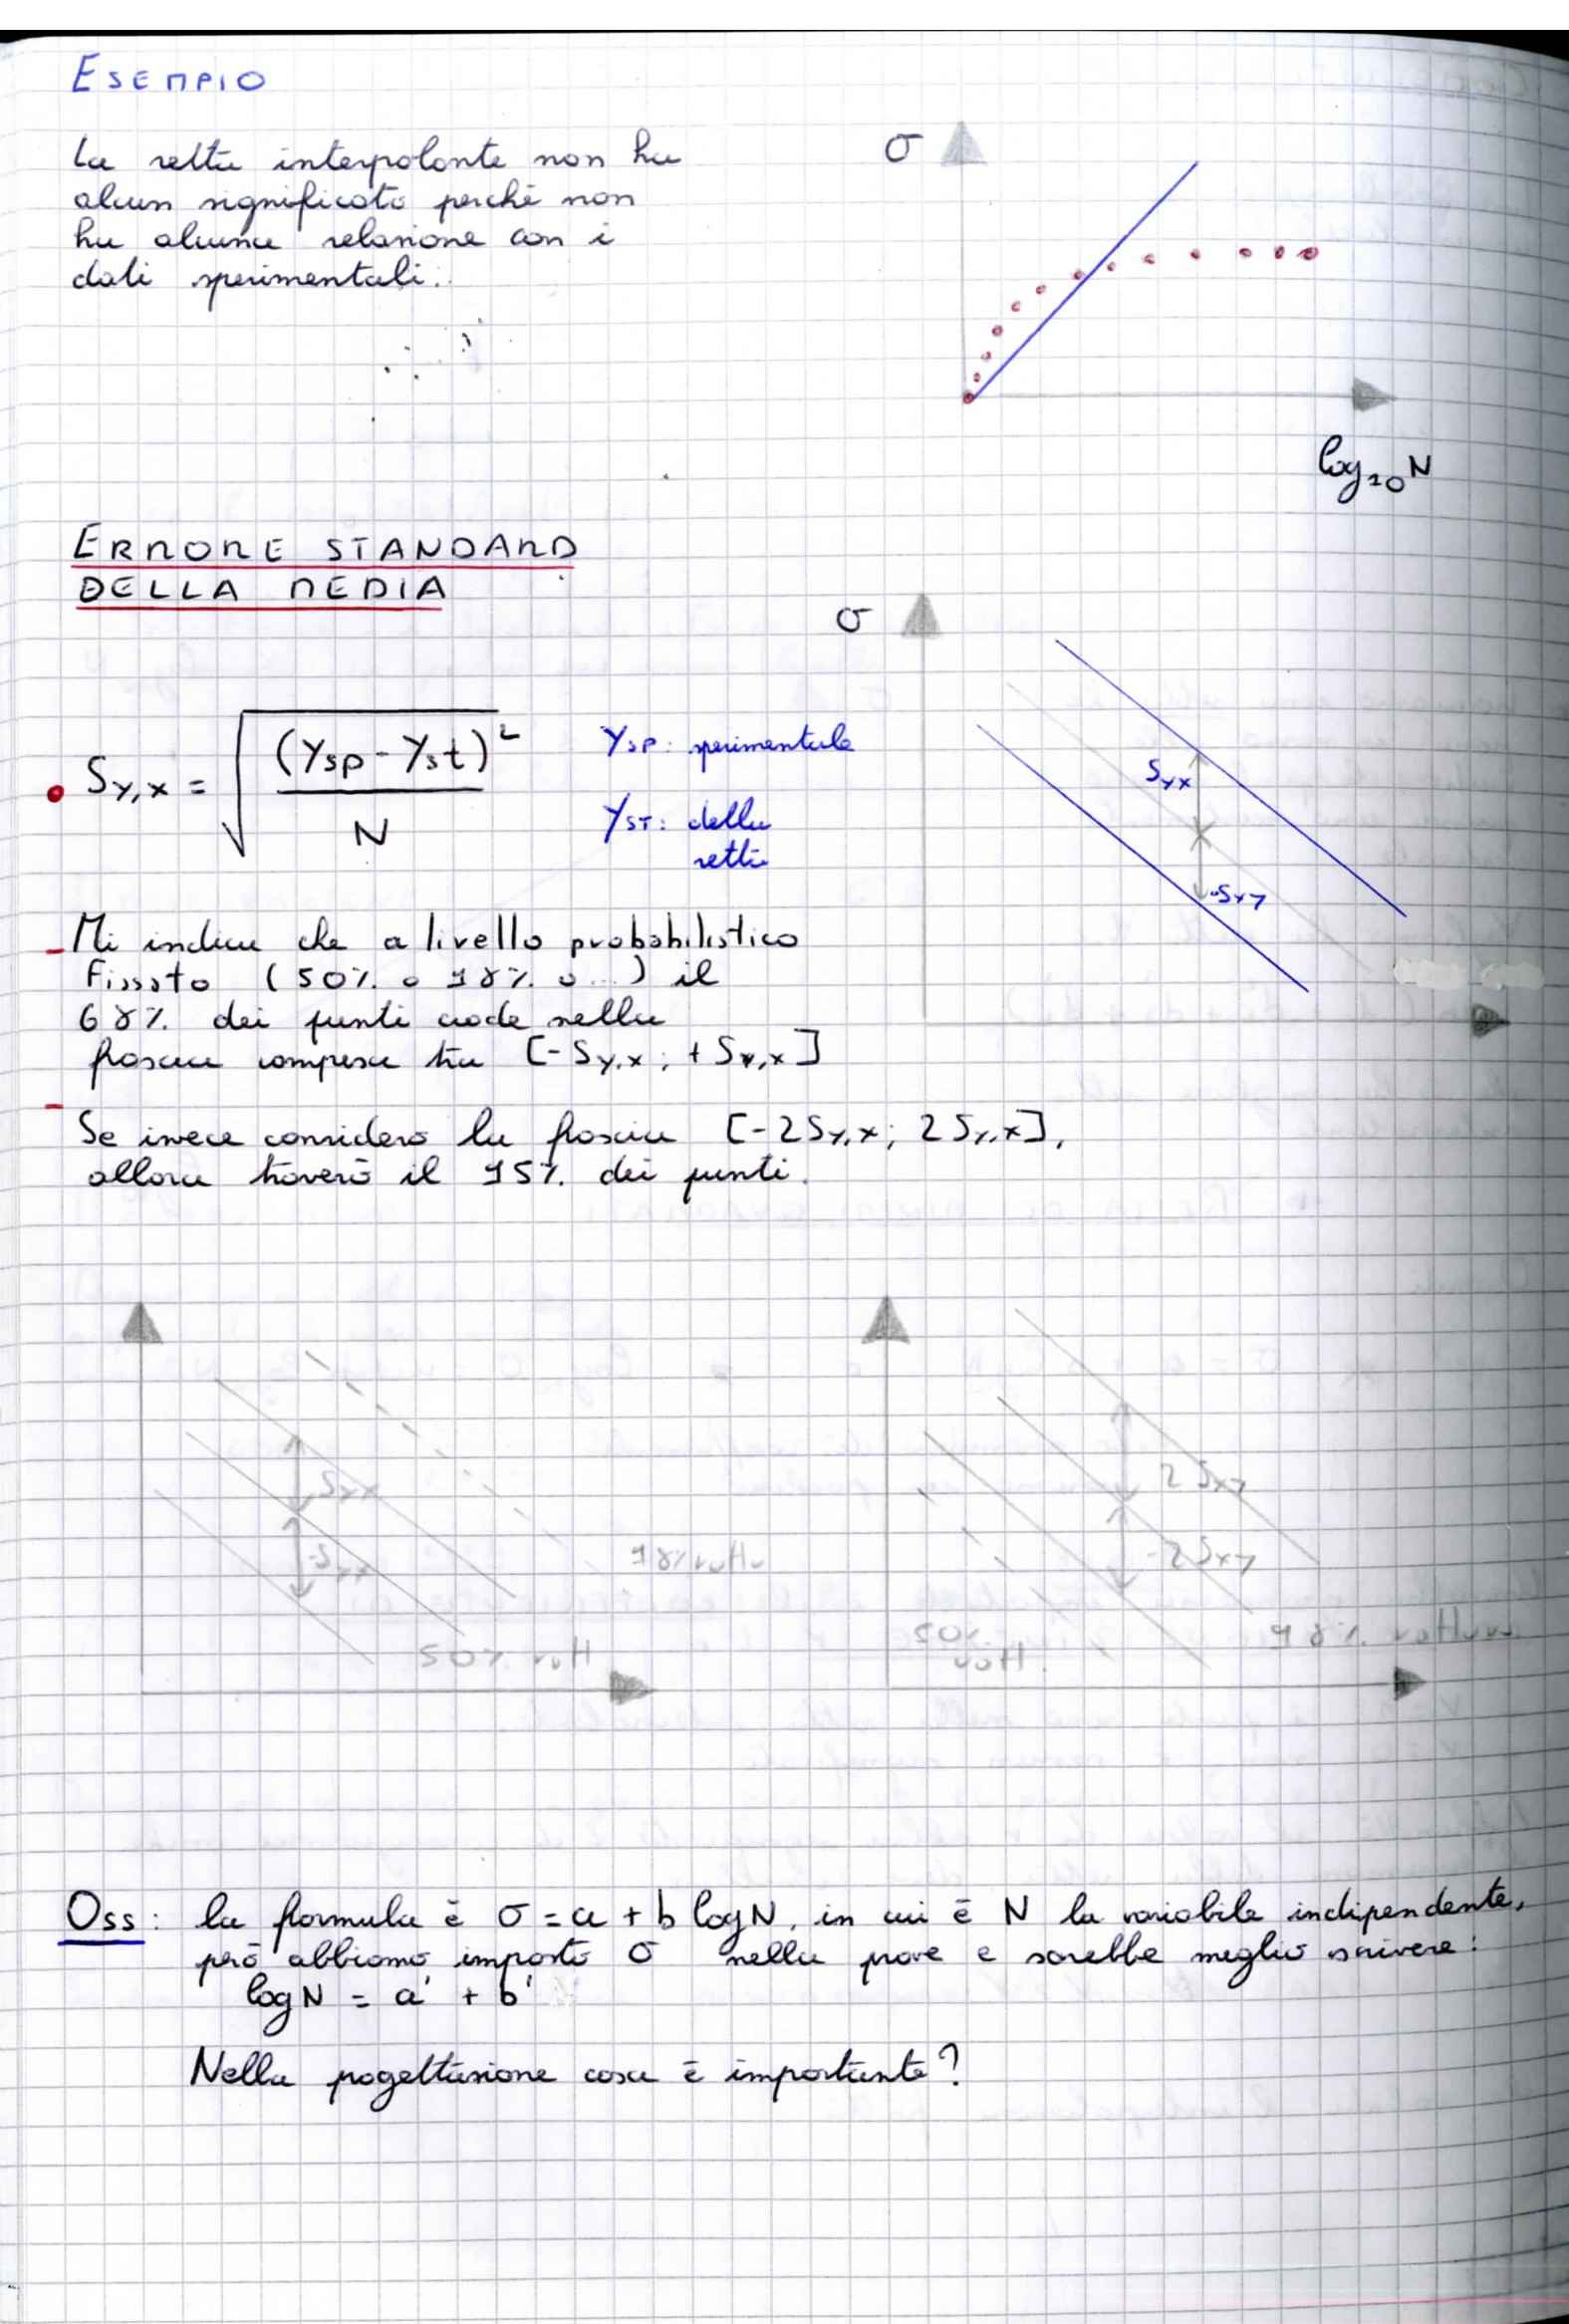 ESEMPIO
La retta interpolante non ha
alcun significato perché non
ha alcuna relazione con i
dati sperimentali.
σ
log₁₀N
ERRORE STANDARD
DELLA MEDIA
σ
• Sy,x = √((Ysp - Yst)² / N)
Ysp: sperimentale
YST: della
retta
Syx
-Sxy
- Mi indica che a livello probabilistico
Fissato (50% o 98% o ...) il
68% dei punti cade nella
fascia compresa tra [-Sy,x ; +Sy,x]
- Se invece considero la fascia [-2Sy,x; 2Sy,x],
allora troverò il 95% dei punti.
Syx
-Syx
98% rotto
50% rott
2Sxy
-2Sxy
50%
rott.
98% rottura
Oss: la formula è σ = a + b logN, in cui è N la variabile indipendente,
però abbiamo imposto σ nella prove e sarebbe meglio scrivere:
logN = a' + b'
Nella pogettazione cosa è importante?